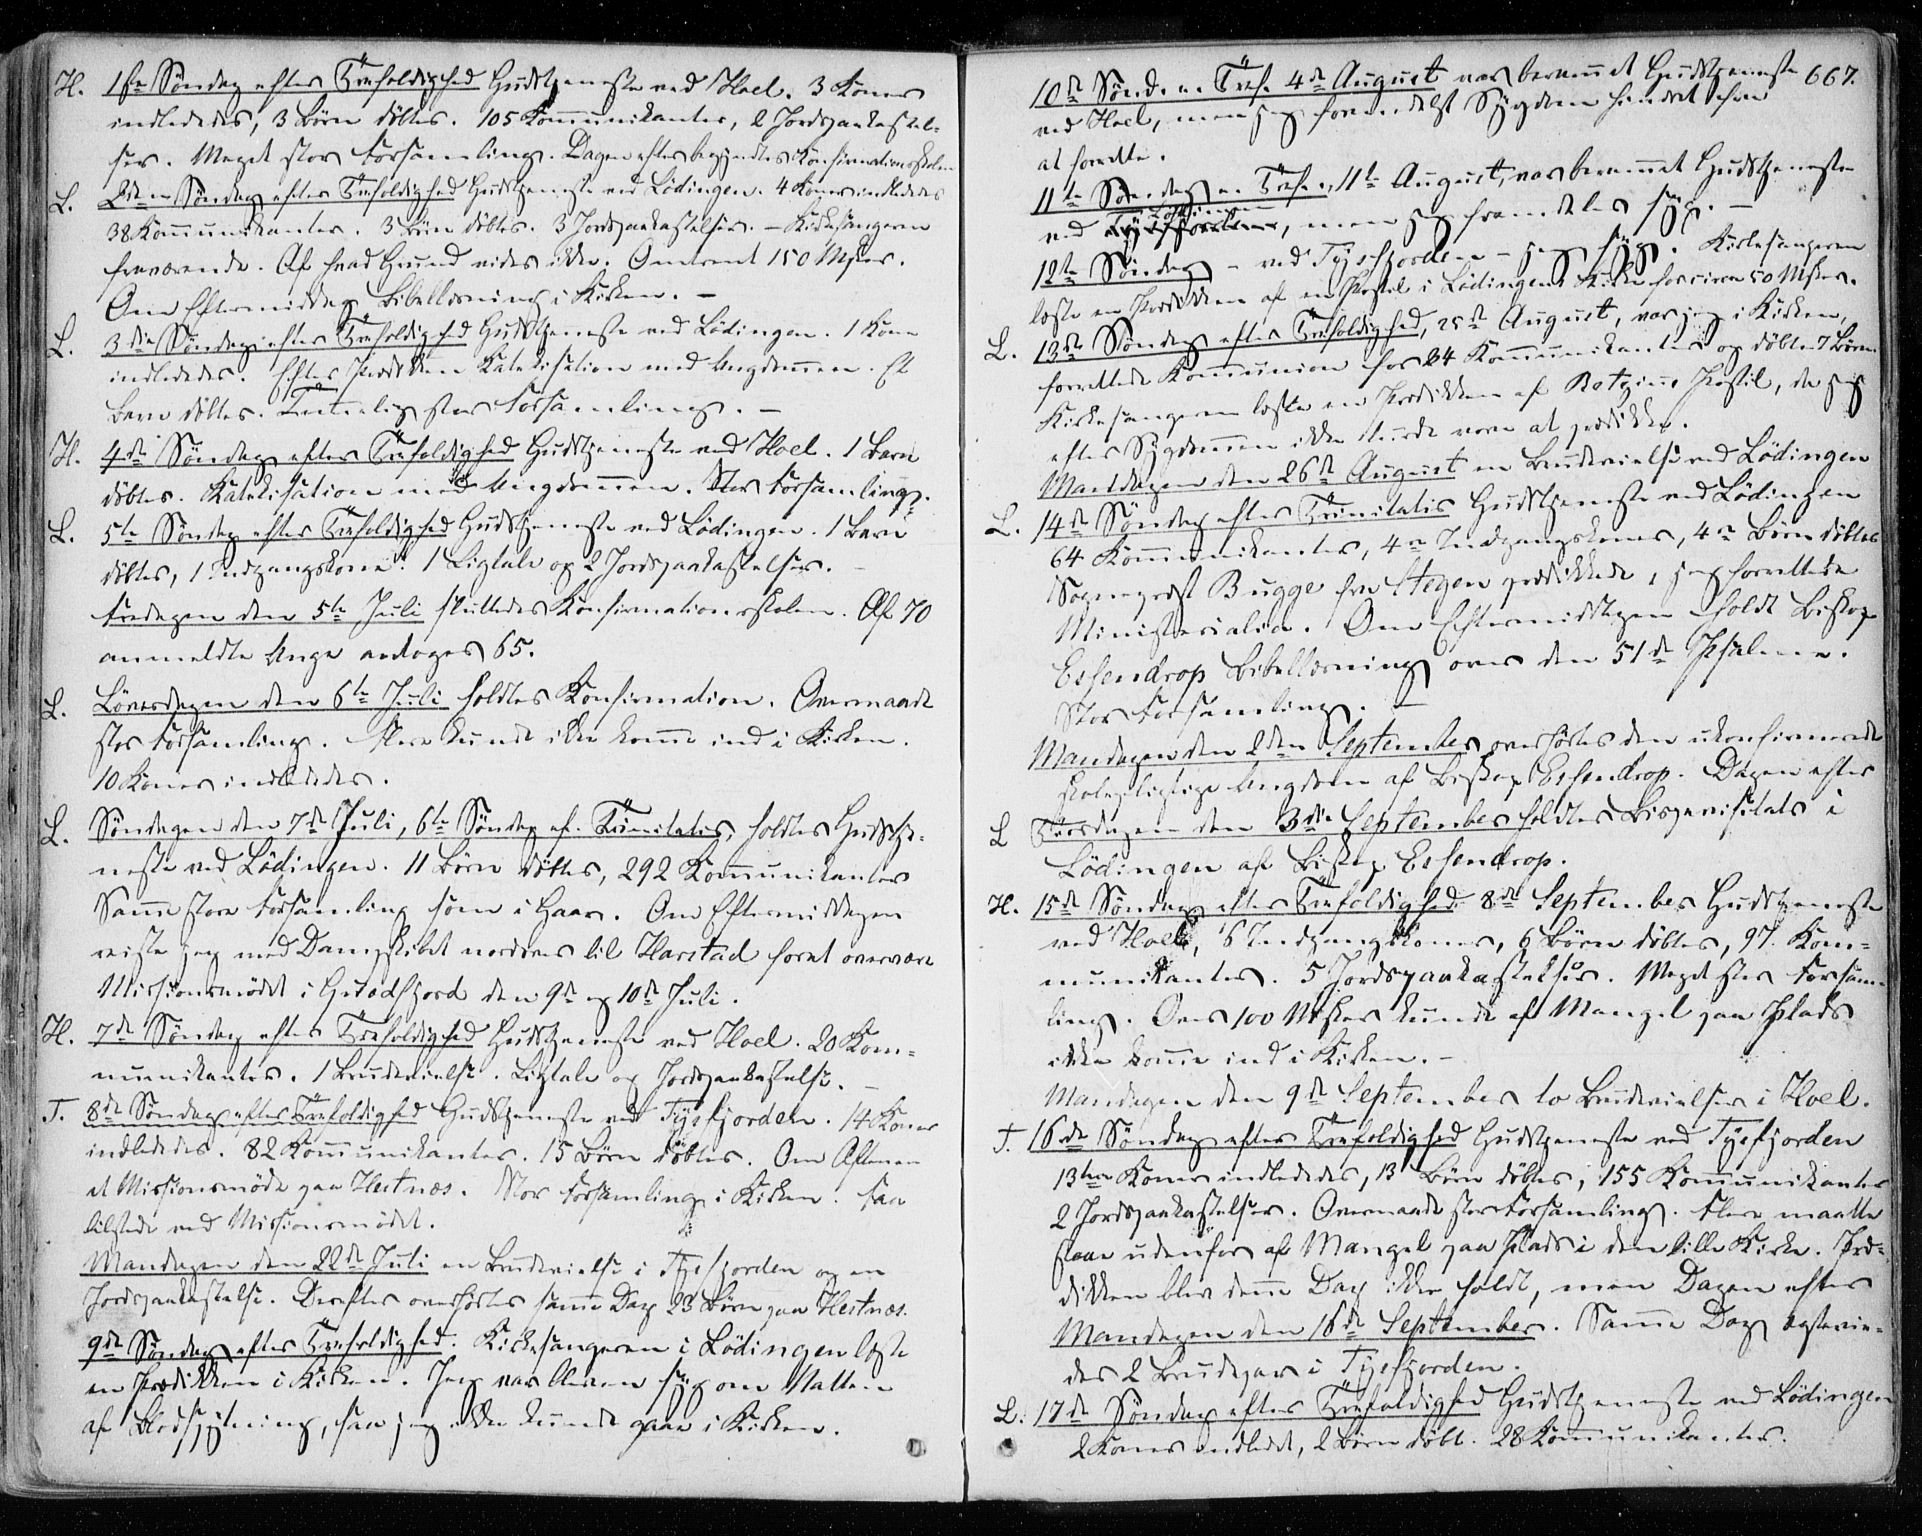 H. 1ste Søndag efter Trefoldighed Gudstjeneste ved Hoel. 3 Koner
indlededes, 3 Børn døbtes. 105 Kommunikanter, 2 Jordpaakastel-
ser. Meget stor Forsamling. Dagen efter begyndtes Konfirmationsskolen
L. 2den Søndag efter Trefoldighed Gudstjeneste ved Lødingen. 4 Koner indledede
38 Kommunikanter. 3 Børn døbtes. 3 Jordpaakastelser. – Kirkesangeren
fraværende. Af hvad Grund vides ikke. Omtrent 150 Msker.
Om Eftermiddag Bibellæsning i Kirken. –
L. 3die Søndag efter Trefoldighed Gudstjeneste ved Lødingen. 1 Kone
indlededes. Efter Prædiken Katekisation med Ungdommen. Et
Barn døbtes. Temmelig stor Forsamling. –
H. 4de Søndag efter Trefoldighed Gudstjeneste ved Hoel. 1 Barn
døbtes. Katekisation med Ungdommen. Stor Forsamling.
L. 5te Søndag efter Trefoldighed Gudstjeneste ved Lødingen. 1 Barn
døbtes, 1 Indgangskone. 1 Ligtale og 2 Jordpaakastelser. –
Fredagen den 5te Juli sluttedes Konfirmationsskolen. Af 70
anmeldte Unge antoges 65.
L. Løverdagen den 6te Juli holdtes Konfirmation. Overmaade
stor Forsamling. Flere kunde ikke komme ind i Kirken.
10 Koner indlededes.
L. Søndagen den 7de Juli, 6te Søndag ef. Trinitatis, holdtes Gudstje-
neste ved Lødingen. 11 Børn døbtes, 292 Kommunikanter
Samme store Forsamling som i Gaar. Om Eftermiddagen
reiste jeg med Dampskibet nordover til Harstad for at overvære
Missionsmødet i den 9de og 10de Juli.
H. 7de Søndag efter Trefoldighed Gudstjeneste ved Hoel. 20 Kom-
munikanter. 1 Brudevielse. Ligtale og Jordpaakastelse. –
T. 8de Søndag efter Trefoldighed Gudstjeneste ved Tysfjorden. 14 Koner
indlededes. 82 Kommunikanter. 15 Børn døbtes. Om Aftenen
et Missionsmøde paa Hestnæs. Stor Forsamling i Kirken. Faa
tilstede ved Missionsmødet.
Mandagen den 22de Juli en Brudevielse i Tysfjorden og en
Jordpaakastelse. Derefter overhørtes samme Dag 23 Børn paa Hestnæs.
9de Søndag efter Trefoldighed. Kirkesangeren i Lødingen læste
en Prædiken i Kirken. Jeg var bleven syg om Natten
af Blodspytning, saa jeg ikke kunde gaae i Kirken.
667.
10de Sønd. e. Tref. 4de August var berammet Gudstjeneste
ved Hoel, men jeg formedelst Sygdom hindret fra
at forrette.
11te Søndag e. Tref., 11te August, var berammet Gudstjeneste
Lødingen
ved Tysfjorden, men jeg fremdeles syg. –
12te Søndag – ved Tysfjorden – jeg syg. Kirkesangeren
læste en Prædiken af en Postil i Lødingens Kirke for circa 50 Msker.
L. 13de Søndag efter Trefoldighed, 25de August, var jeg i Kirken,
forrettede Kommunion for 24 Kommunikanter og døbte 7 Børn
Kirkesangeren læste en Prædiken af Postil, da jeg
efter Sygdommen ikke turde vove at prædike.
Mandagen den 26de August en Brudevielse ved Lødingen
L. 14de Søndag efter Trinitatis Gudstjeneste ved Lødingen
64 Kommunikanter, 4re Indgangskoner, 4re Børn døbtes
Sognepræst Bugge fra Stegen prædikede, jeg forrettede
Ministerialia. Om Eftermiddagen holdt Biskop
Essendrop Bibellæsning over den 51de Psalme.
Stor Forsamling. –
Mandagen den 2den September overhørtes den ukonfirmerede
skolepligtige Ungdom af Biskop Essendrop. Dagen efter
L Tirsdagen den 3die September holdtes Bispevisitats i
Lødingen af Biskop Essendrop.
H. 15de Søndag efter Trefoldighed 8de September Gudstjeneste
ved Hoel, 6 Indgangskoner, 6 Børn døbtes, 97 Kom-
munikanter. 5 Jordpaakastelser. Meget stor Forsam-
ling. Over 100 Msker kunde af Mangel paa Plads
ikke komme ind i Kirken. –
Mandagen den 9de September to Brudevielser i Hoel.
T. 16de Søndag efter Trefoldighed Gudstjeneste ved Tysfjorden
13ten Koner indlededes, 13 Børn døbtes, 155 Kommunikanter
2 Jordpaakastelser. Overmaade stor Forsamling. Flere maatte
staae udenfor af Mangel paa Plads i den lille Kirke. Præ-
diken blev denne Dag ikke holdt, men Dagen efter
Mandagen den 16de September. Samme Dag egtevie-
des 2 Brudepar i Tysfjorden.
L. 17de Søndag efter Trefoldighed Gudstjeneste ved Lødingen
2 Koner indledet, 2 Børn døbt. 28 Kommunikanter.